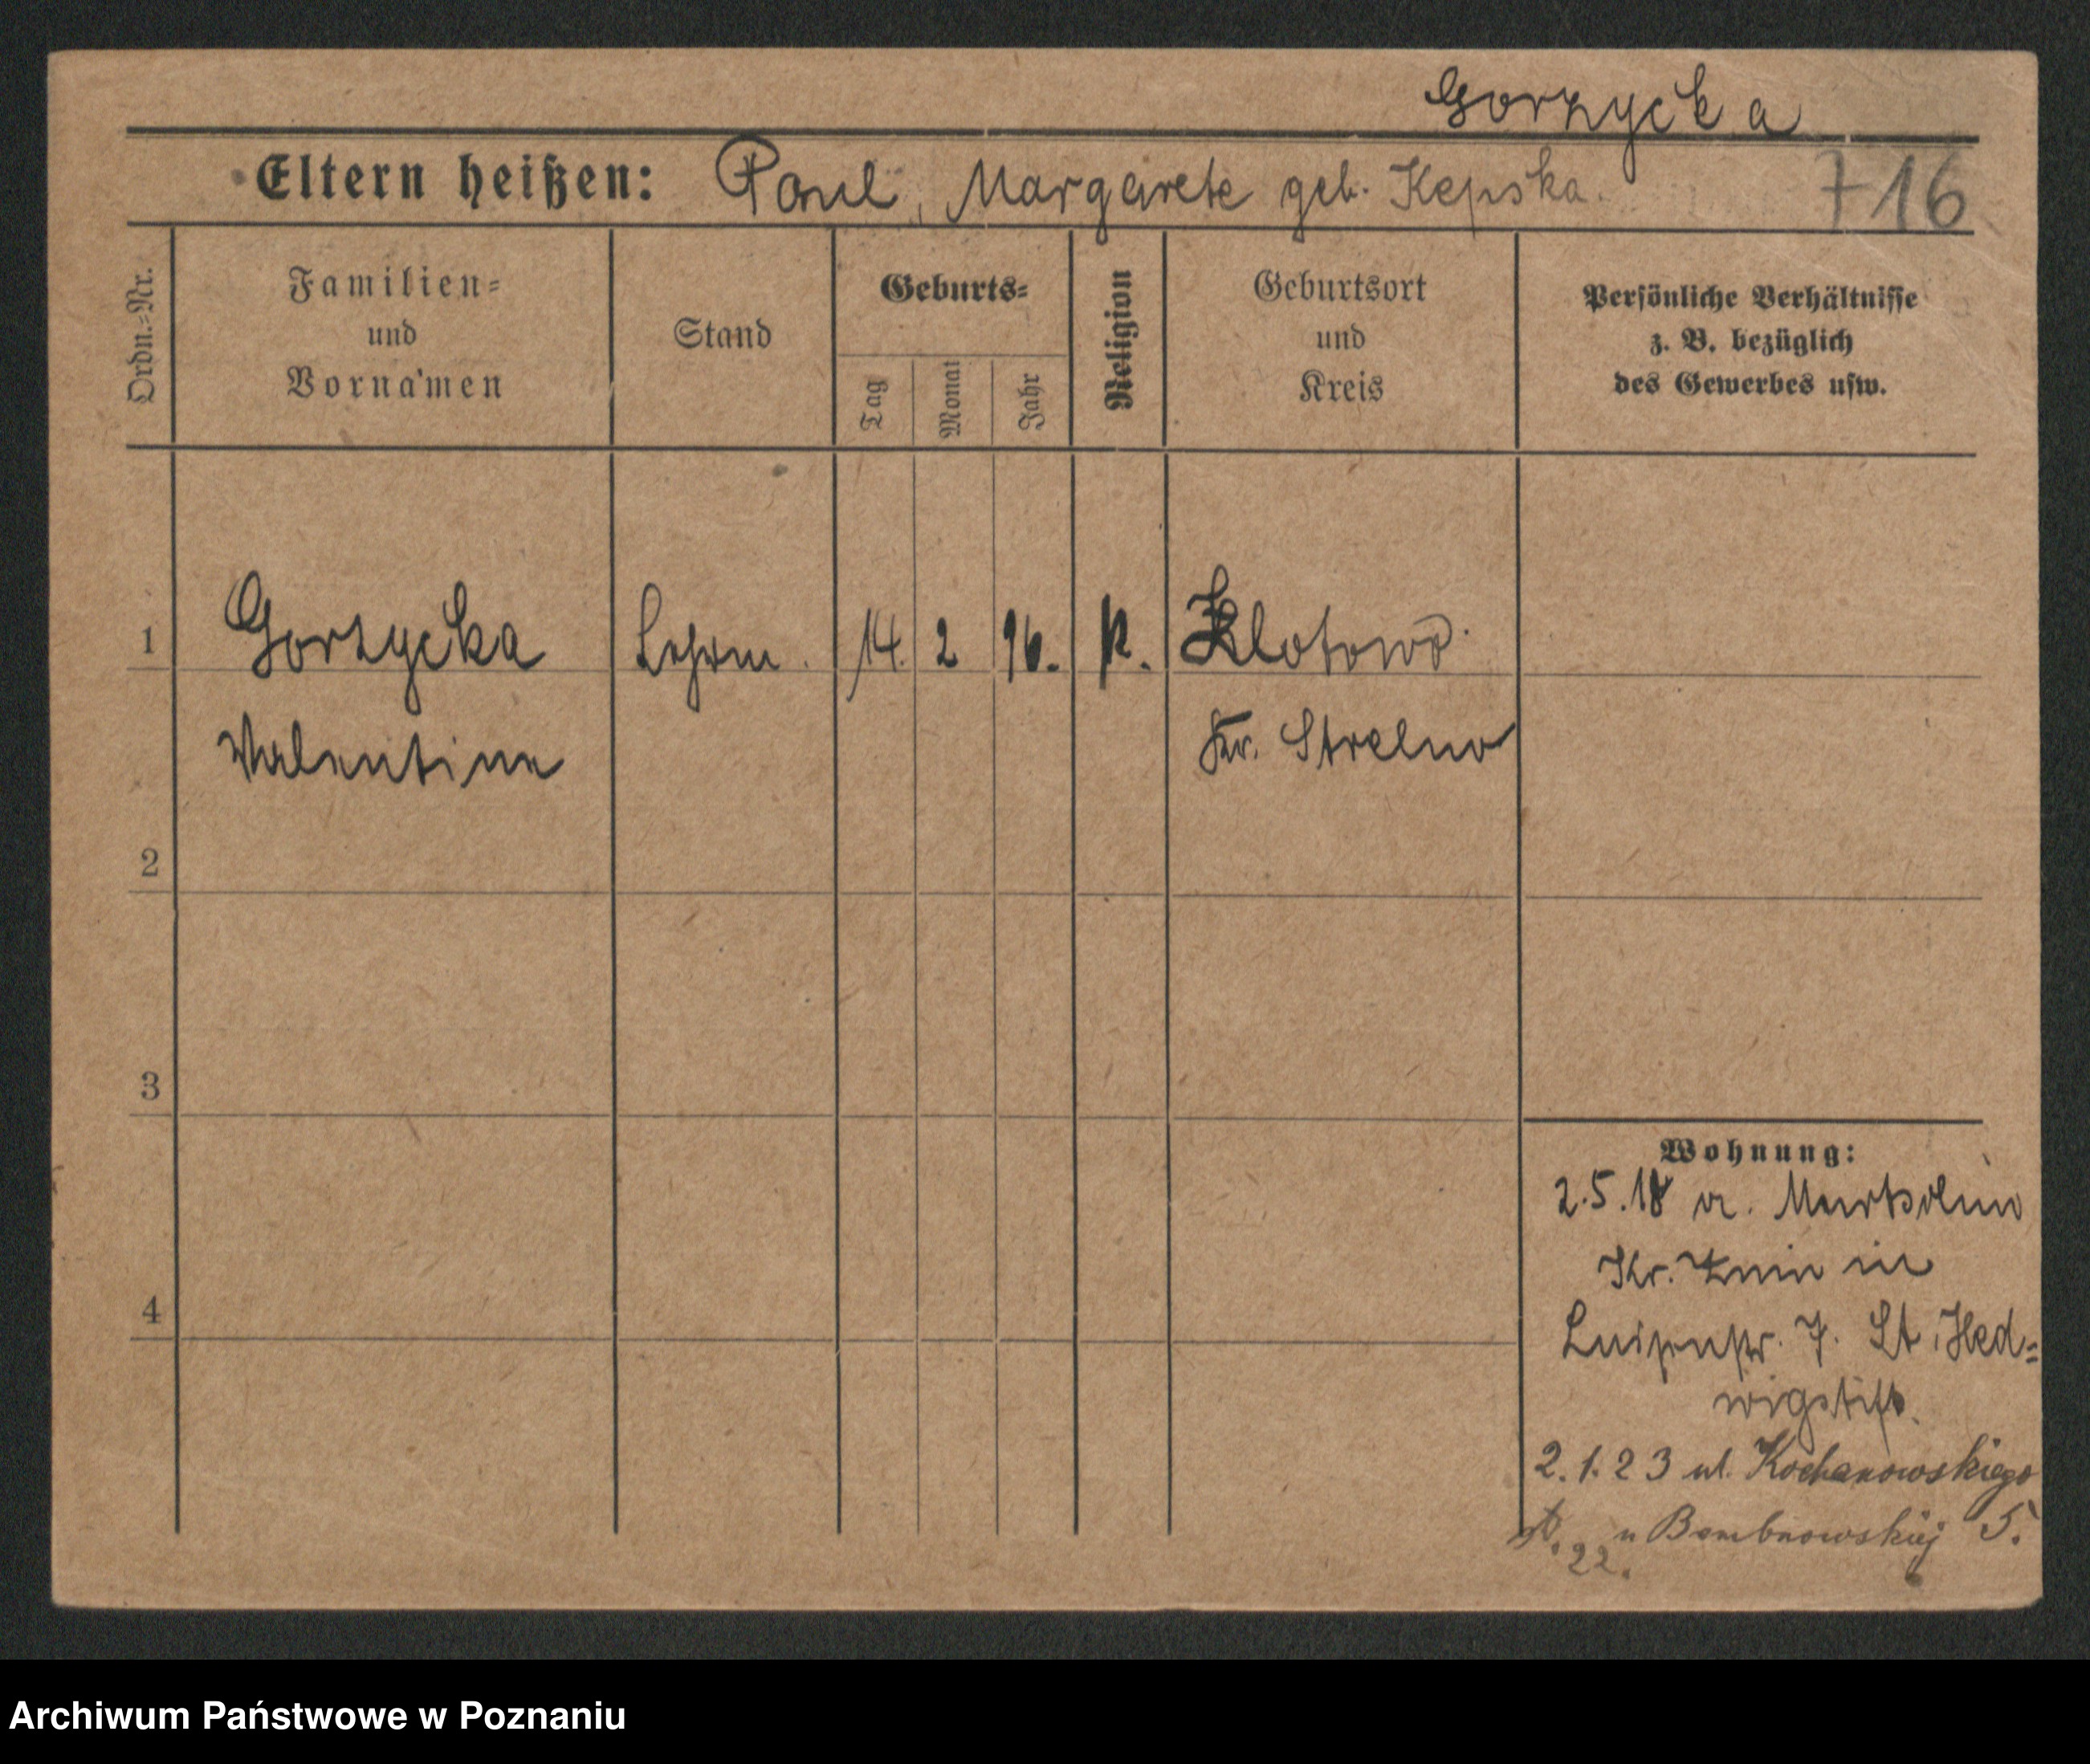 Gorzycka
Eltern heißen: Paul, Margarete geb. Kepska.
716
Ordn.-Nr.
Familien-
und
Vornamen
Stand
Geburts-
Tag
Monat
Jahr
Religion
Geburtsort
und
Kreis
Persönliche Verhältnisse
z. B. bezüglich
des Gewerbes usw.
1
Gorzycka
14. 2 96. K.
Valentine
Kr. Strelno
2
3
4
Wohnung:
2.5.18
Kr. Znin in
Luisenstr. 7. St. Hed=
wigstift.
2.1.23 ul. Kochanowskiego
22. u 5.
Archiwum Państwowe w Poznaniu